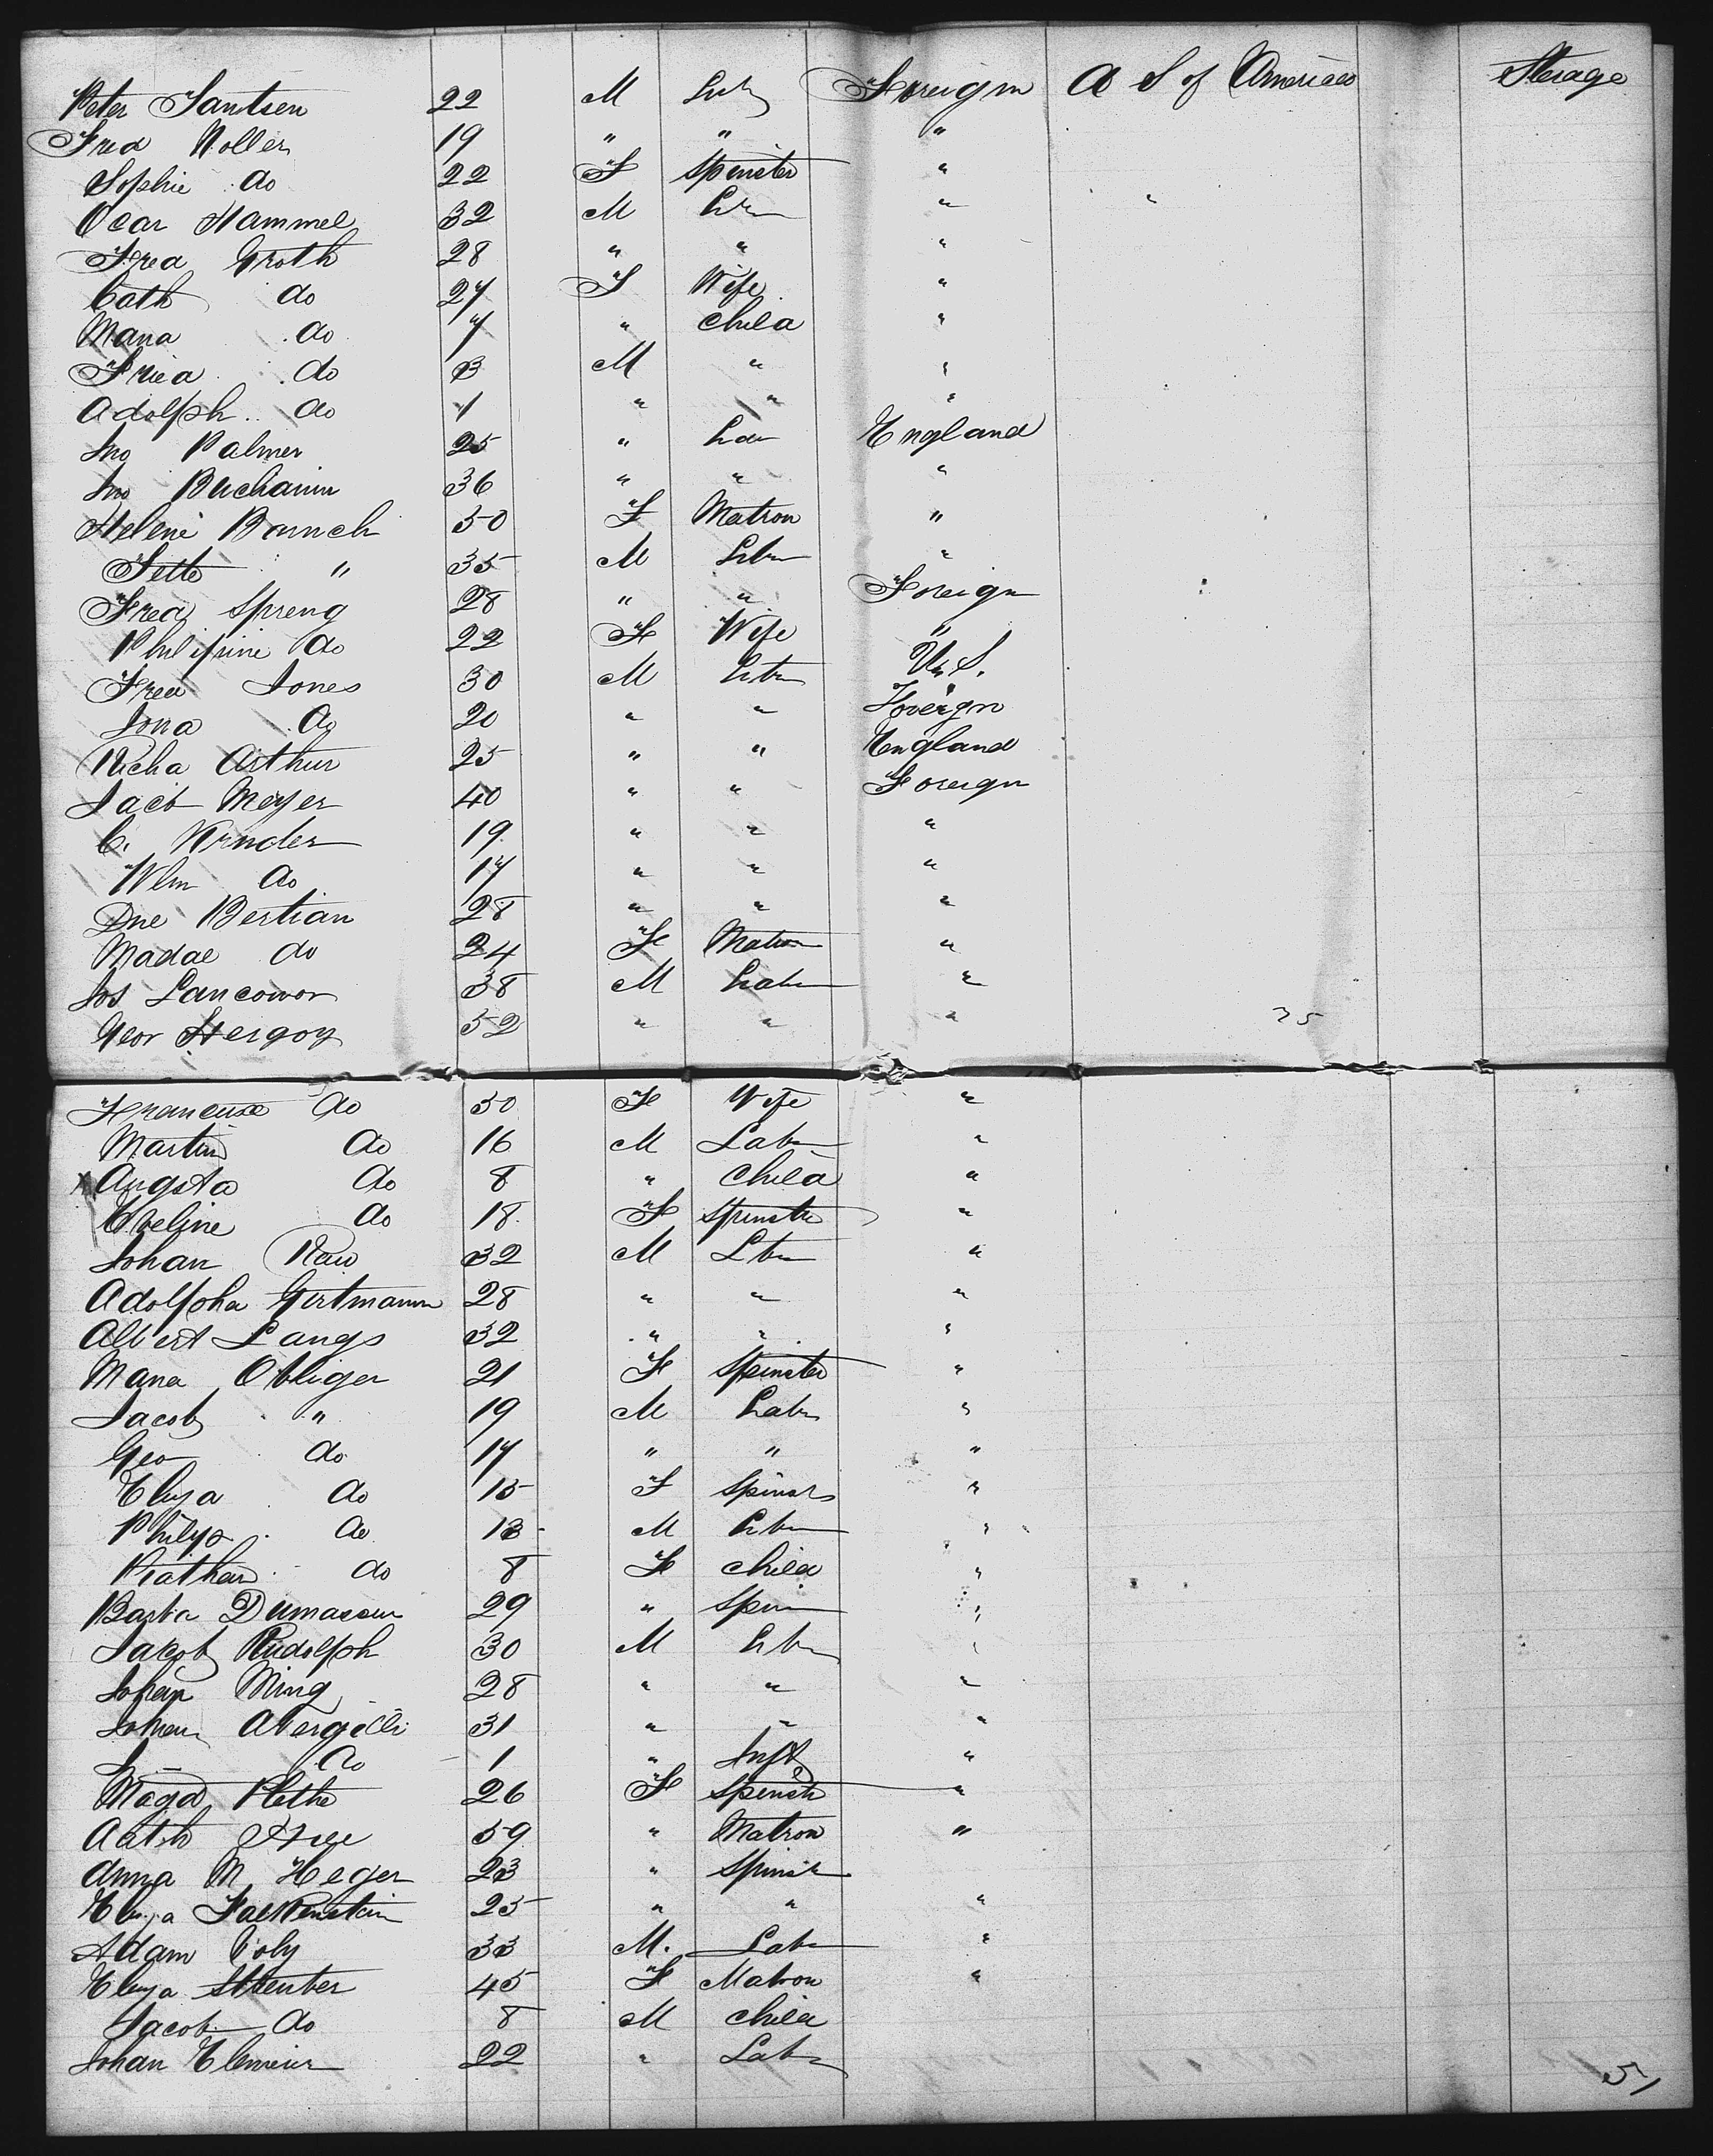 Peter Santsen 22 M Lbr Foreign U S of America Sterage
Fred Noller 19 " " "
Sophie do 22 F Spinster "
Ocar Hammel 32 M Lbr " "
Fred Groth 28 " " "
Cath do 27 F Wife "
Maria do 7 " Child "
Fried do 3 M " "
Adolph do 1 " " "
Jno Palmer 25 " Labr England
Jno Buchann 36 " " "
Helene Barnch 50 F Matron "
Sette " 35 M Lbr "
Fred Spreng 28 " " Foreign
Philipine do 22 F Wife "
Fred Jones 30 M Lbr U.S.
Jona do 20 " " Foreign
Richd Arthur 25 " " England
Jacb Meyer 40 " " Foreign
C. 19 " " "
Wlm do 17 " " "
Dne Bertian 28 " " "
Madae do 24 F Matron "
Jos Lancowor 38 M Labr "
Geor Hergoy 52 " " " 25
do 50 F Wife "
Martin do 16 M Labr "
x Augsta do 8 " Child "
Eveline do 18 F Spinster "
Johan Rau 32 M Lbr "
Adolpha Girtmann 28 " " "
Albert Langs 32 " " "
Maria Obliger 21 F Spinster "
Jacob " 19 M Labr "
Geo do 17 " " "
Eliza do 15 F Spinsr "
Philip do 13 M Lbr "
do 8 F Child "
Barba Dumassur 29 " Spin "
Jakob Rudolph 30 M Lbr "
Johan Ming 28 " " "
Johan Abergilli 31 " " "
do 1 " Inft "
Magd Plethe 26 F Spinstr "
59 " Matron "
Anna M Heger 23 " Spinstr
Eliza Falkenstein 25 " " "
Adam Coby 33 M. Labr "
Eliza Streuber 45 F Matron "
Jacob do 8 M Child
Johan 22 " Labr
51